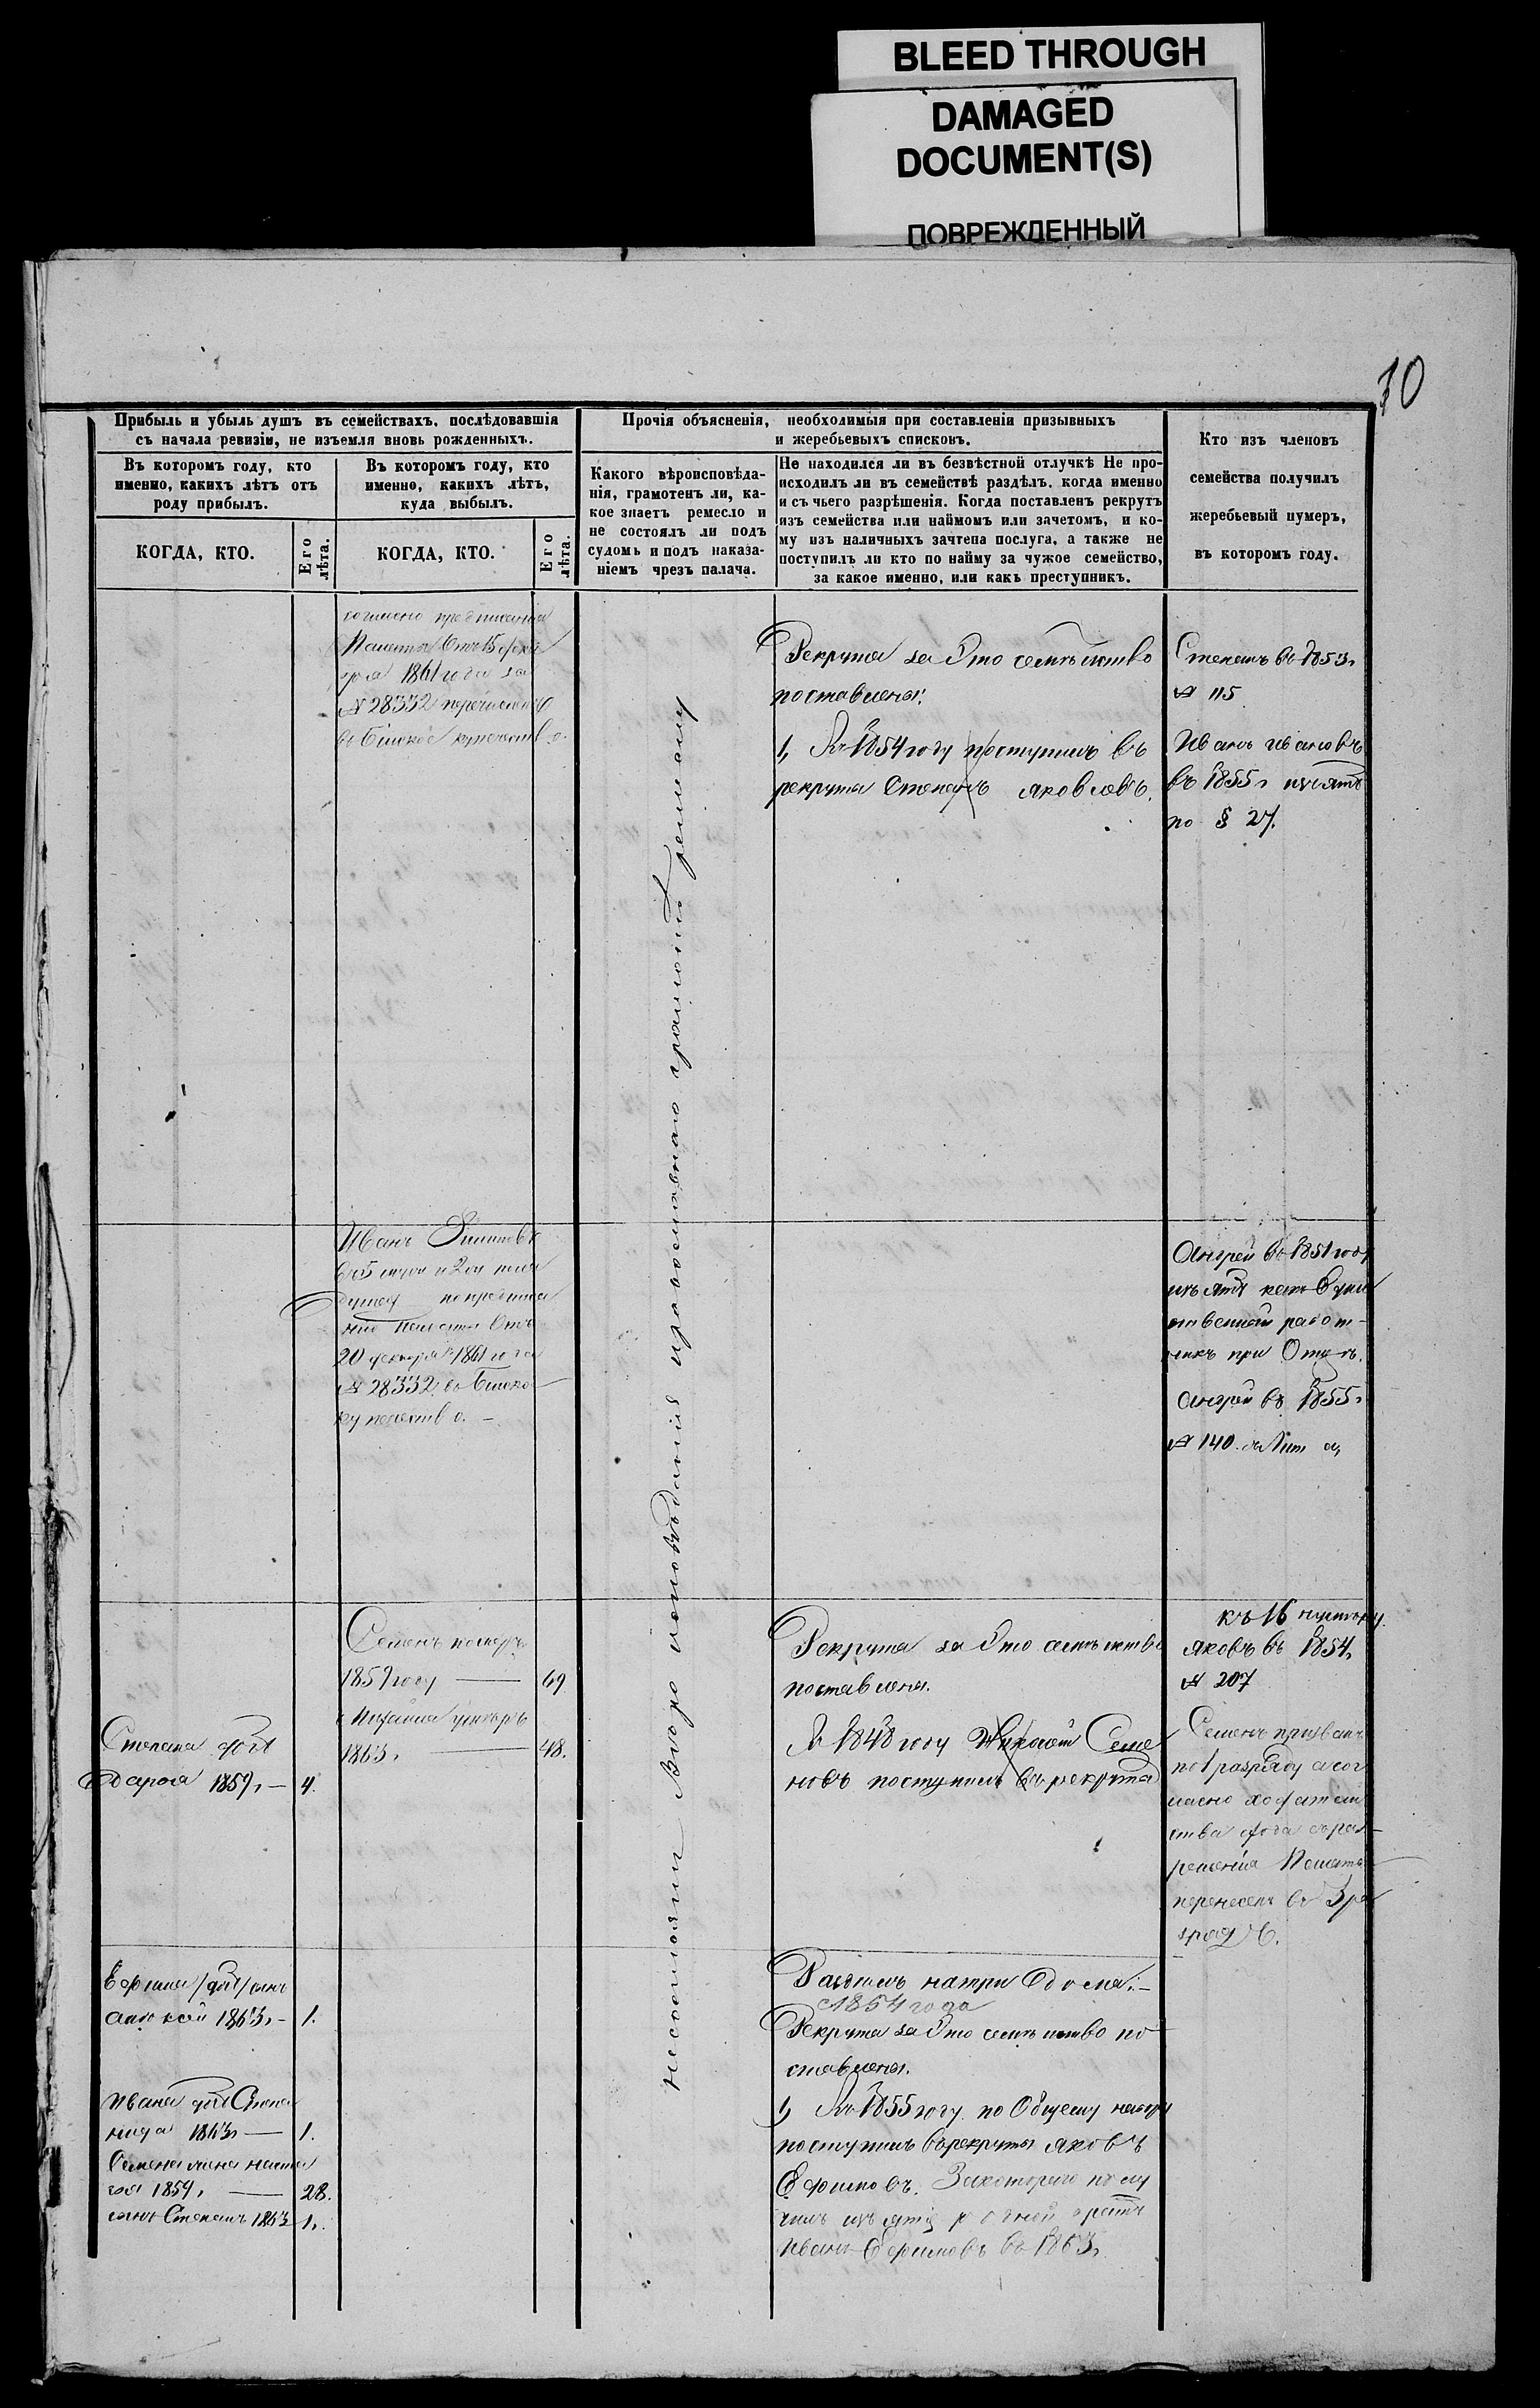 BLEED THROUGH
DAMAGED
DOCUMENT(S)
ПОВРЕЖДЕННЫЙ
70
Прибыль и убыль душъ въ семействахъ, послѣдовавшія
съ начала ревизіи, не изъемля вновь рожденныхъ.
Въ которомъ году, кто
именно, какихъ лѣтъ отъ
роду прибылъ.
КОГДА, КТО.
Его
лѣта.
Въ которомъ году, кто
именно, какихъ лѣтъ,
куда выбылъ.
КОГДА, КТО.
Его
лѣта.
Прочія объясненія, необходимыя при составленіи призывныхъ
и жеребьевыхъ списковъ.
Какого вѣроисповѣда-
нія, грамотенъ ли, ка-
кое знаетъ ремесло и
не состоялъ ли подъ
судомъ и подъ наказа-
ніемъ чрезъ палача.
Не находился ли въ безвѣстной отлучкѣ Не про-
исходилъ ли въ семействѣ раздѣлъ, когда именно
и съ чьего разрѣшенія. Когда поставленъ рекрутъ
изъ семейства или наймомъ или зачетомъ, и ко-
му изъ наличныхъ зачтена послуга, а также не
поступилъ ли кто по найму за чужое семейство,
за какое именно, или какъ преступникъ.
Кто изъ членовъ
семейства получилъ
жеребьевый нумеръ,
въ которомъ году.
согласно предписанія
Палаты отъ 15
1861 года за
№ 28332 перечислены
въ Бійское купечество.
Рекрута за Это семѣйство
поставлены.
1, Въ 1854 году поступилъ въ
рекрута Степанъ Яковлевъ.
Степанъ въ 1853 г
№ 115
Иванъ Ивановъ
въ 1855 г изъятъ
по § 27.
Иванъ
душею по предписа
нію Палаты Отъ
20 декабря 1861 года
№ 28332 въ Бійско
купечество. -
Андрей въ 1851 году
изъятъ какъ Един
ственный работ-
никъ при Отцѣ.
Андрей въ 1855 г
№ 140.
Семенъ померъ
1859 году — 69
Михаила умеръ
1863 г — 48.
Степана
Дарья 1859 г — 4.
Рекрута за Это семѣйство
поставлены.
Въ 1848 году Семе
новъ поступилъ въ рекрута
къ 16 нумеру
Яковъ въ 1854 г
№ 207
Семенъ призванъ
по 1 разряду а сог
ласно ходатай
ства
решенія Палаты
перенесенъ въ 3 ра
зрядъ.
Ефима сынъ
1863 г — 1.
Ивана Степа
нида 1863 г — 1.
Семена жена Наста
сья 1859 г — 28.
сынъ Степанъ 1863 — 1.
Раздѣлъ на три дома:-
1854 года
Рекрута за Это семѣйство по
ставлены.
1, Въ 1855 году по Общему набору
поступилъ въ рекруты Яковъ
Ефимовъ. За котораго полу
чилъ изъятіе родной братъ
Иванъ Ефимовъ въ 1863 г
Несостояли Вѣроисповѣданія православнаго грамотѣ ремеслу